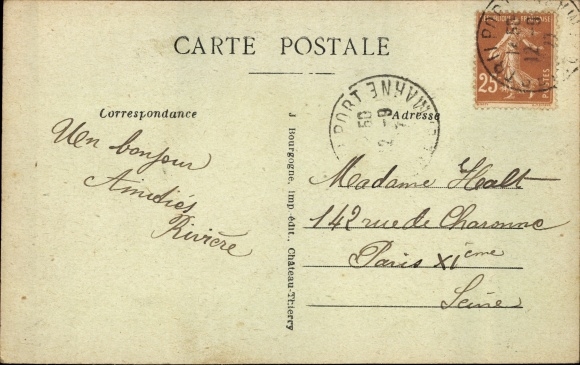 CARTE POSTALE
Correspondance
Un bonjour
Amitiés
Rivière
J. Bourgogne, imp.-édit., Château-Thierry
PORT
MARNE
Adresse
25
POSTES
Madame Halt
142 rue de Charonne
Paris XIème
Seine